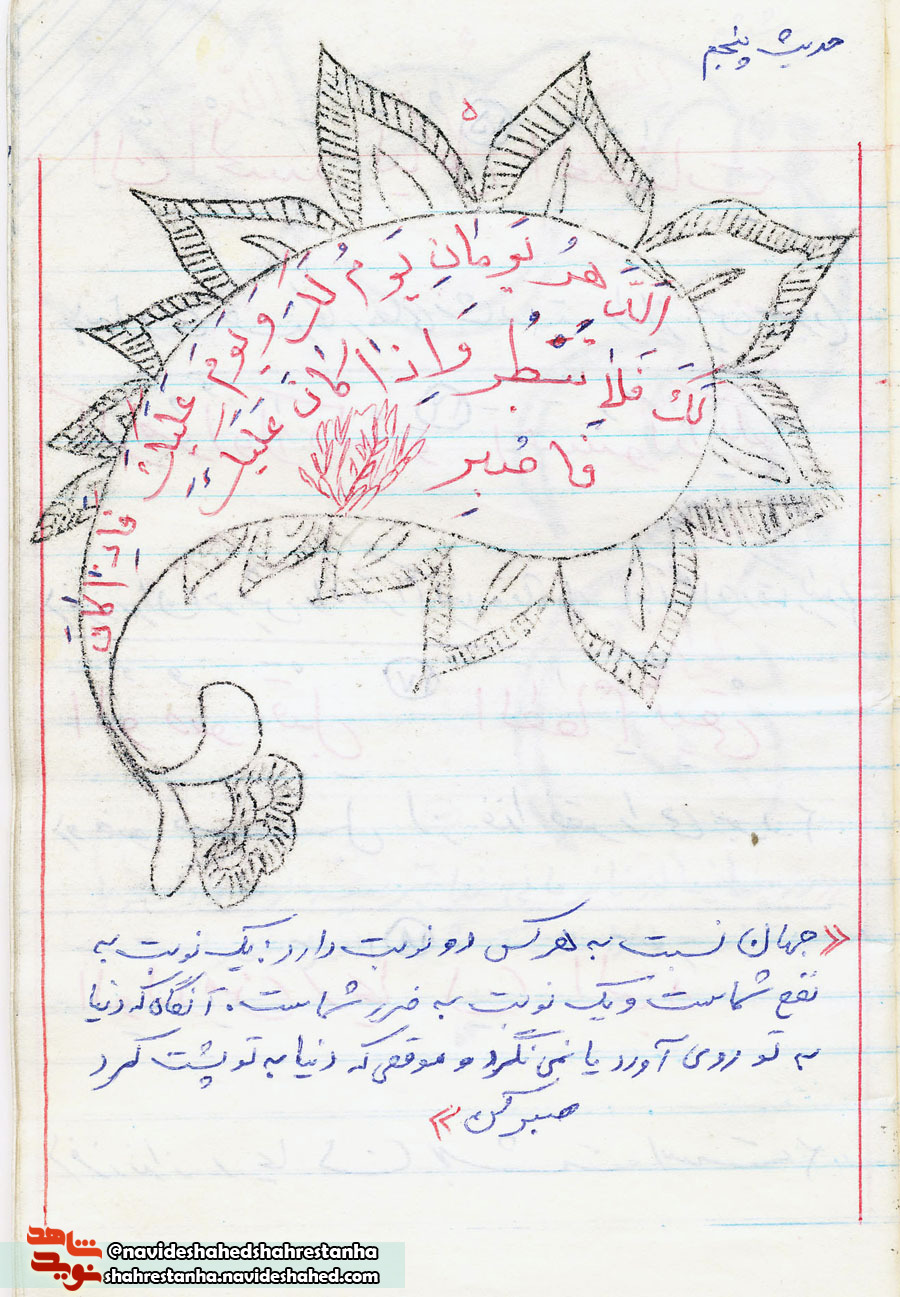 حدیث پنجم
۵
الدَّهرُ یَومانِ یَومٌ لَکَ وَ یَومٌ عَلَیکَ
فَاِذا کانَ
لَکَ فَلا تَبطُر وَ اِذا کانَ عَلَیکَ
فَاصبِر
«جهان نسبت به هر کس دو نوبت دارد: یک نوبت به
نفع شماست و یک نوبت به ضرر شماست. آنگاه که دنیا
به تو روی آورد یا نمی‌نگرد و موقعی که دنیا به تو پشت کرد
صبر کن»
شاهد
نوید
@navideshahedshahrestanha
shahrestanha.navideshahed.com